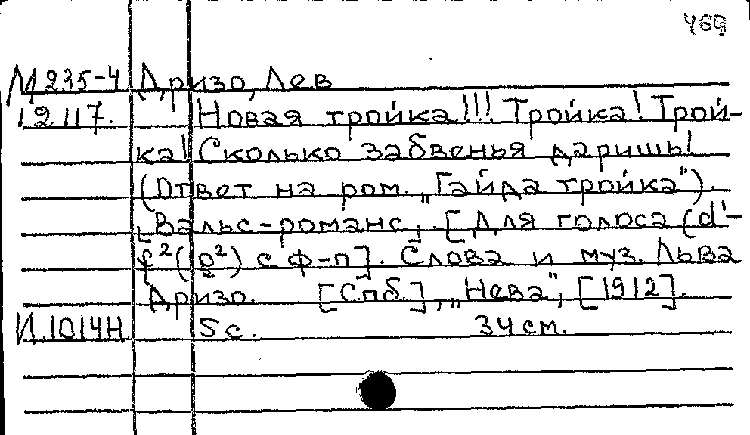 469
М 235-4 Дризо, Лев
12 117. Новая тройка!!! Тройка! Трой-
ка! Сколько забвенья даришь!
(Ответ на ром. „Гайда тройка").
Вальс-романс. [Для голоса (d¹-
f²(g²) с ф-п]. Слова и муз. Льва
Дризо. [Спб], „Нева", [1912].
И.1014Н 5 с. 34 см.